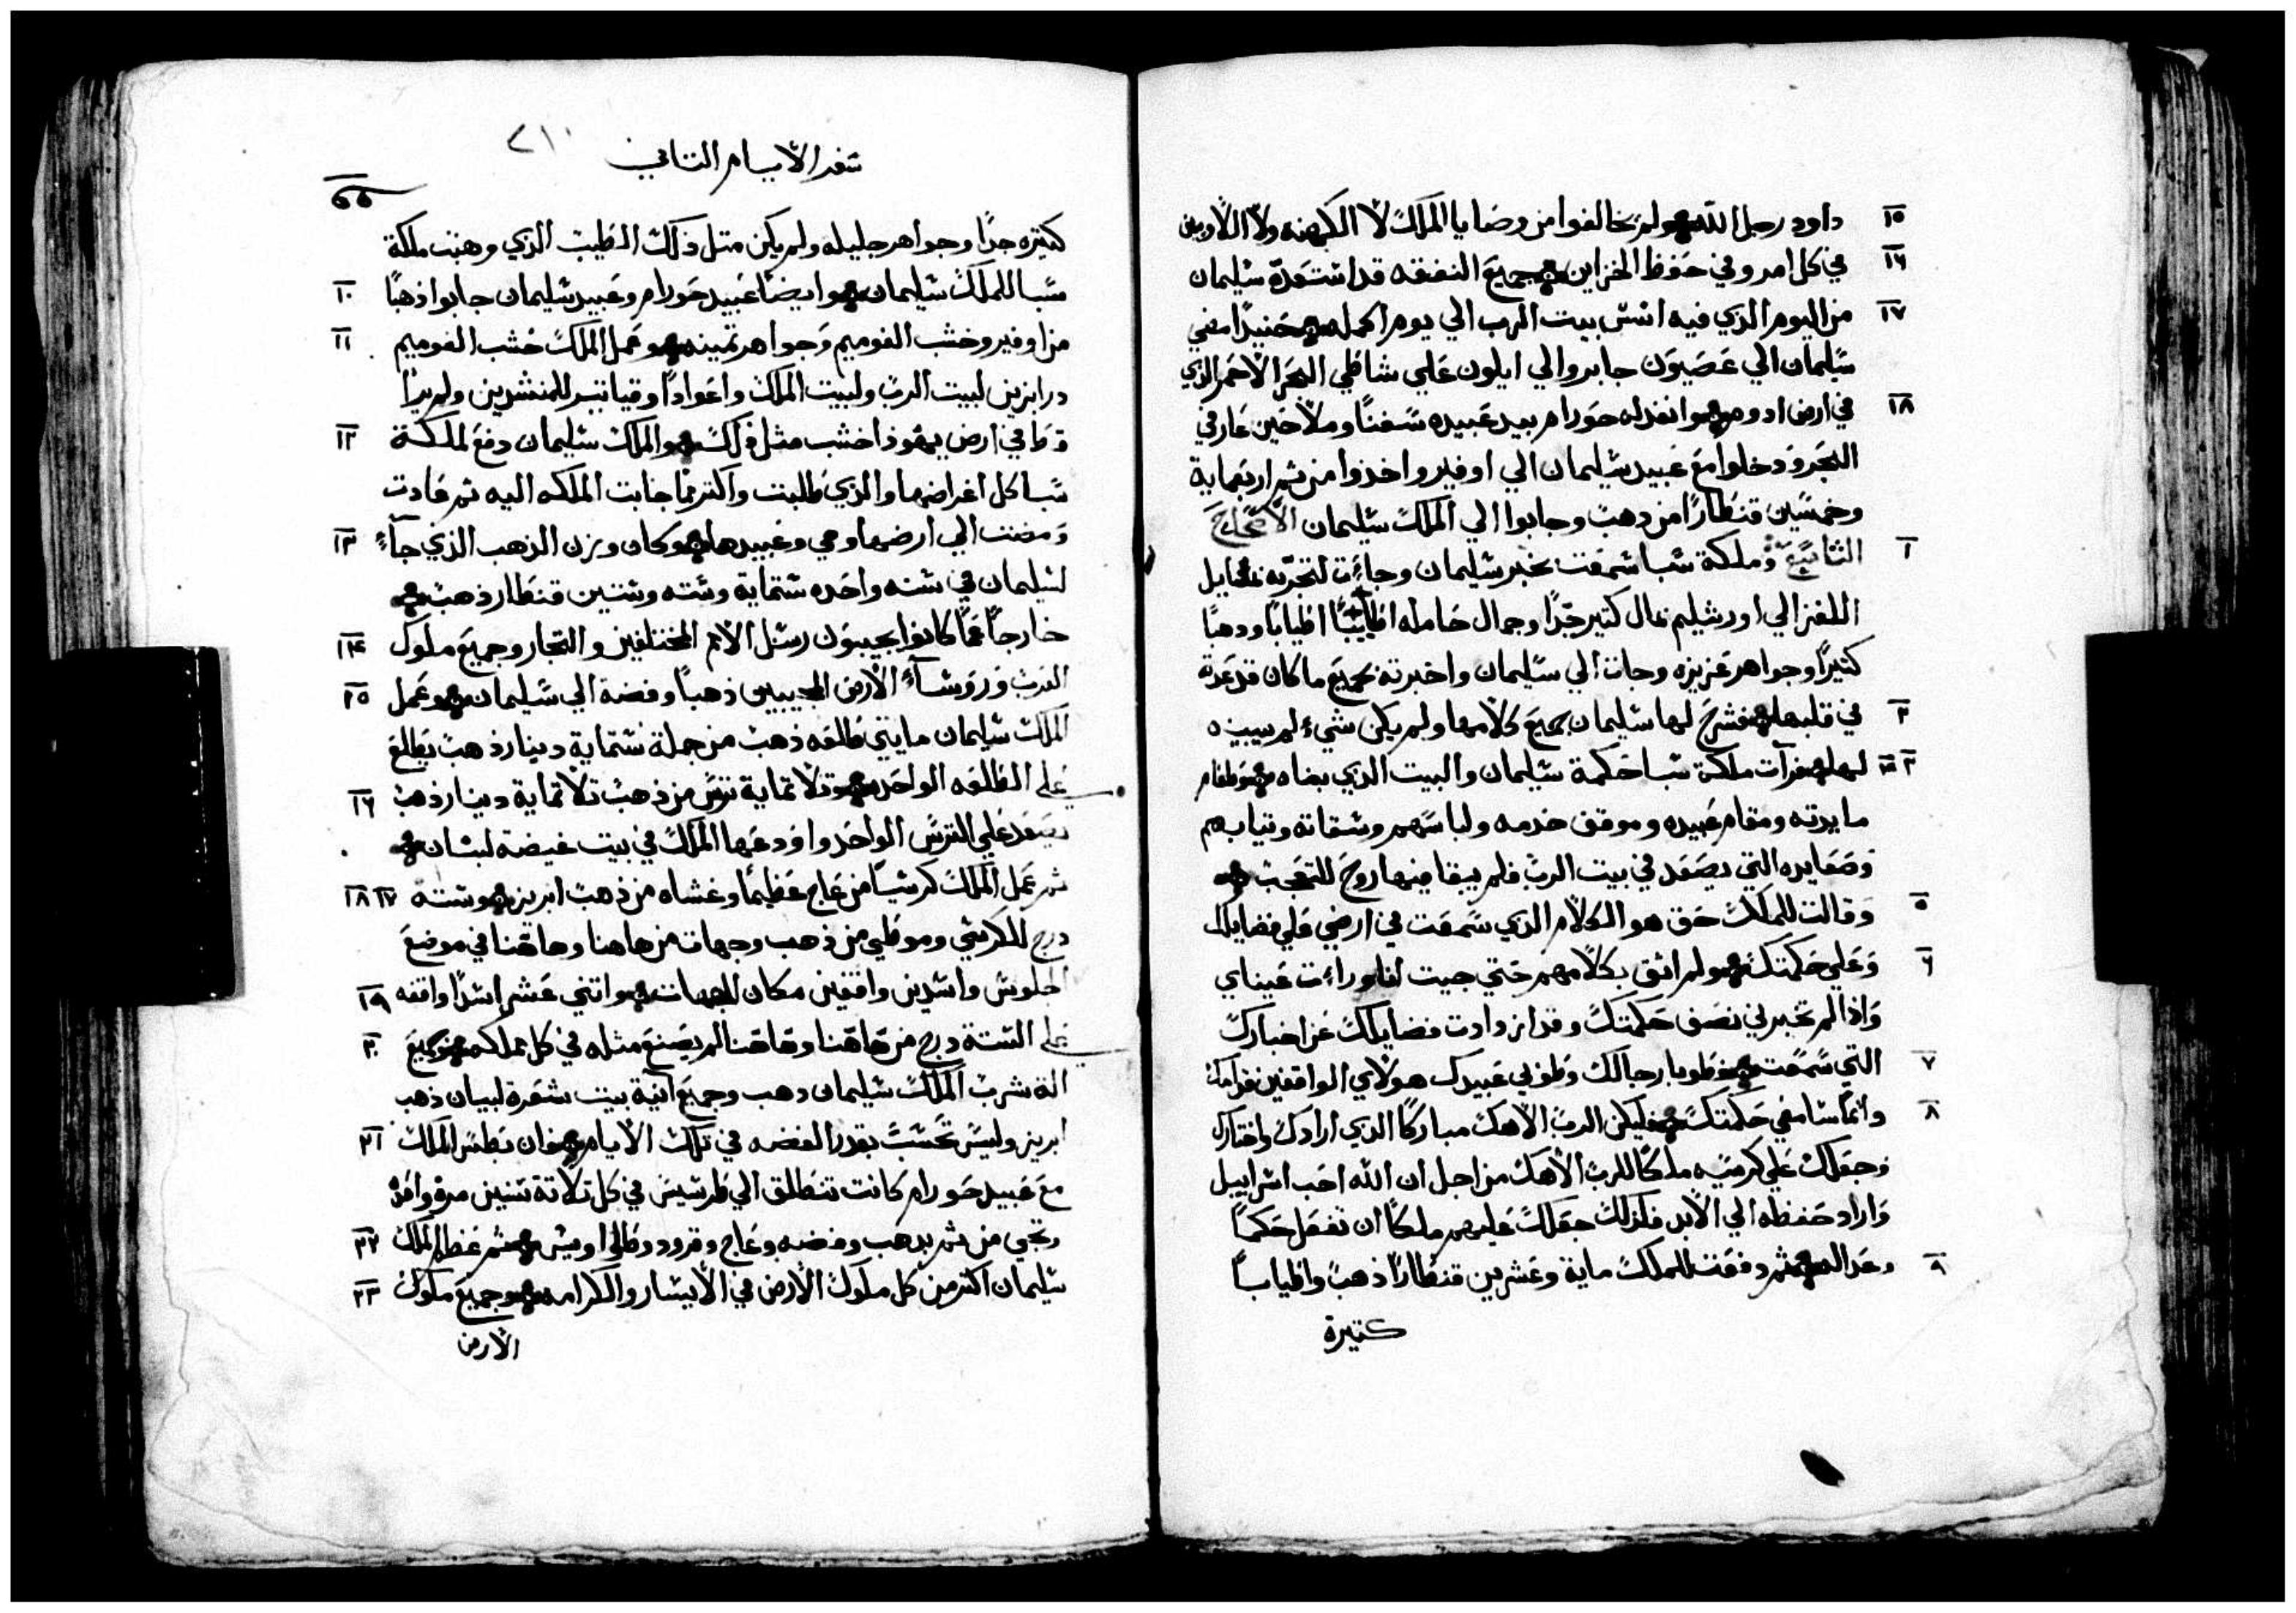 ١٥ داود رجل الله ولم يخالفوا من وصايا الملك لا الكهنه ولا اللاويين
١٦ في كل امر وفي حفظ الخزاين جميع النفقه قد استعدّه سليمان
١٧ من اليوم الذي فيه اسّس بيت الرب الي يوم اكمله حنيدًا مضي
سليمان الي عصيون جابر والي ايلون علي شاطي البحر الاحمر الذي
١٨ في ارض ادوم وانفد له حورام بيد عبيده سفنًا وملاحين عارفي
البحر ودخلوا مع عبيد سليمان الي اوفير واخذوا من ثم اربعماية
وخمسين قنطارًا من دهب وجابوا الي الملك سليمان الاصحاح
١ التاسع وملكة سبا سمعت بخبر سليمان وجاءت لتجرّبه
اللغز الي اورشليم بمال كتير جدًا وجمال حامله اطيابًا ودهبًا
كتيرًا وجواهر عزيزه وجات الي سليمان واخبرته بجميع ما كان
٢ في قلبها فشرح لها سليمان جميع كلامها ولم يكن شيء لم يبينه
٣ ٤ لها فرآت ملكة سبا حكمة سليمان والبيت الذي بناه وطعام
مايدته ومقام عبيده وموقف خدمه ولباسهم وسقاته وتيابهم
وصعايده التي يصعد في بيت الرب فلم يبقا فيها روح للتعجب
٥ وقالت للملك حق هو الكلام الذي سمعت في ارضي علي فضايلك
٦ وعلي حكمتك ولم اثق بكلامهم حتي جيت انا وراءت عيناي
واذا لم تخبرني نصف حكمتك وقد ازدادت فضايلك عن اخبارك
٧ التي سمعت فطوبا رجالك وطوبي عبيدك هولاي الواقفين قدامك
٨ دائمًا سامعي حكمتك فليكن الرب الاهك مباركًا الذي ارادك واختارك
وجعلك علي كرسيه ملكًا للرب الاهك من اجل ان الله احب اسراييل
واراد حفظه الي الابد فلذلك جعلك عليهم ملكًا ان تفعل حكمًا
٩ وعداله ثم دفعت للملك ماية وعشرين قنطارًا ذهب واطيابًا
كتيرة
سفر الايام التاني
٢١٠
كتيره جدًا وجواهر جليله ولم يكن متل ذلك الطيب الذي وهبت ملكة
١٠ سبا للملك سليمان وايضًا عبيد حورام وعبيد سليمان جابوا ذهبًا
١١ من اوفير وخشب الفوميم وجواهر تمينه وعمل الملك خشب الفوميم
درابزين لبيت الرب ولبيت الملك واعوادًا وقياتير للمنشدين ولم يرا
١٢ قط في ارض يهوذا خشب متل ذلك والملك سليمان دفع لملكة
سبا كل اغراضها والذي طلبت واكتر مما جابت الملكه اليه تم عادت
١٣ ومضت الي ارضها وهي وعبيدها وكان وزن الذهب الذي جآء
لسليمان في سنه واحده ستماية وسته وستين قنطار ذهب
١٤ خارجًا عمّا كانوا يجيبون رسل الامم المختلفين والتجار وجميع ملوك
١٥ العرب وروسآء الارض المجيبين ذهبًا وفضة الي سليمان وعمل
الملك سليمان مايتي طالعه ذهب من جملة ستماية دينار ذهب يطالع
١٦ علي الطالعه الواحده وتلاتماية ترس من ذهب تلاتماية دينار ذهب
يصعد علي الترس الواحد واودعها الملك في بيت غيضة لبنان
١٧ ١٨ تم عمل الملك كرسيًا من عاج عظيمًا وغشاه من ذهب ابريز وسته
درج للكرسي وموطي من ذهب وجهات من هاهنا وهاهنا في موضع
١٩ الجلوس واسدين واقفين مكان الجهات واتني عشر اسدًا واقفه
٢٠ علي الستة درج من هاهنا وهاهنا لم يصنع متله في كل مملكه وجميع
انة شرب الملك سليمان دهب وجميع آنية بيت شعرة لبنان ذهب
٢١ ابريز وليس تحسب بقدر الفضه في تلك الايام فان بطس الملك
مع عبيد حورام كانت تنطلق الي طرسيس في كل تلاتة سنين مرة واحده
٢٢ وتجي من تم بدهب وفضه وعاج وقرود وطواويس تم عظم الملك
٢٣ سليمان اكتر من كل ملوك الارض في الايسار والكرامه وجميع ملوك
الارض